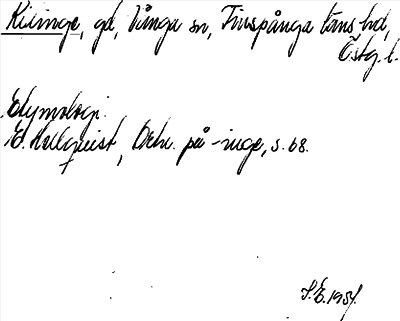 Kuinge, gd, Vånga sn, Finspånga läns hd,
Östg. l.
Etymologi.
E. Hellquist, Ortn. på -inge, s. 68.
S.E. 1951.